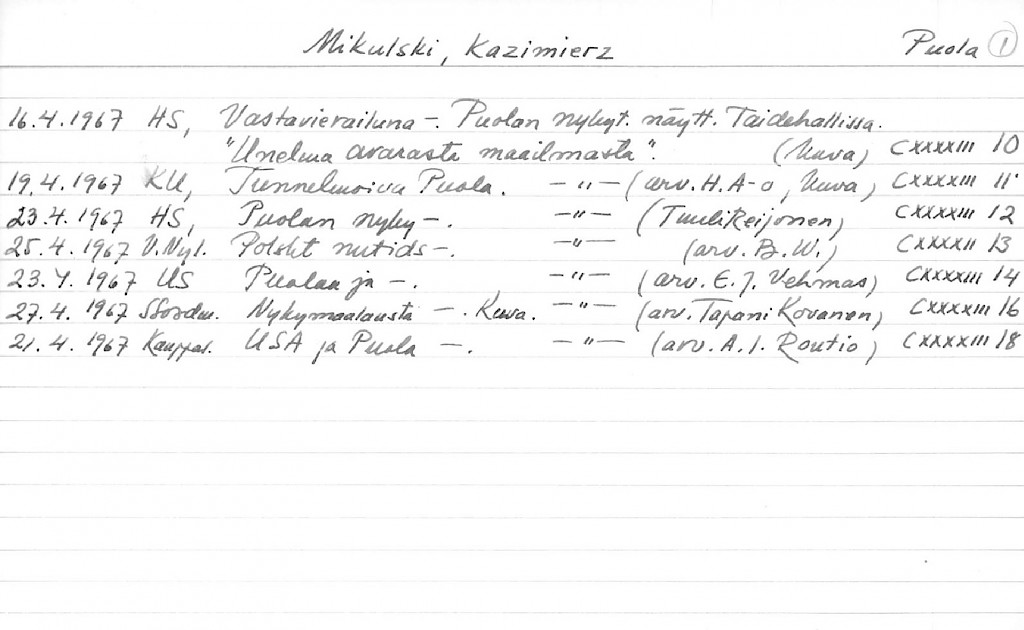 Mikulski, Kazimierz Puola 1
16.4.1967 HS, Vastavierailuna -. Puolan nykyt. näytt. Taidehallissa.
"Unelma avarasta maailmasta". (Kuva) CXXXXIII 10
19.4.1967 KU, Tunnelmoiva Puola. -"- (arv. H.A-o, Kuva) CXXXXIII 11
23.4.1967 HS, Puolan nyky -. -"- (Tuuli Reijonen) CXXXXIII 12
25.4.1967 U.Nyl. Polskt nutids -. -"- (arv. B.W.) CXXXXII 13
23.4.1967 US Puolan ja -. -"- (arv. E.J. Vehmas) CXXXXIII 14
27.4.1967 SSosdem. Nykymaalausta -. Kuva. -"- (arv. Tapani Kovanen) CXXXXIII 16
21.4.1967 Kauppal. USA ja Puola -. -"- (arv. A.I. Routio) CXXXXIII 18